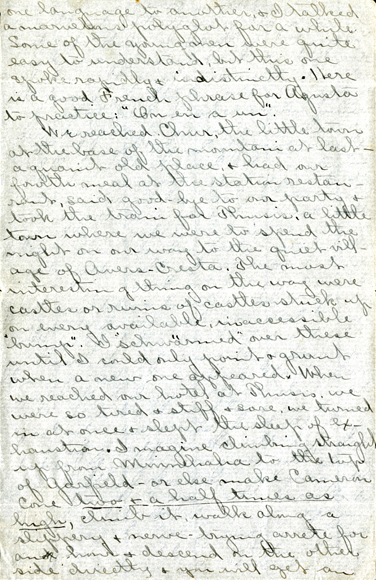 one language to another, & I talked
a marvelous polyglot for a while.
Some of the young men were quite
easy to understand, but this one
spoke rapidly & indistinctly. Here
is a good French phrase for Agusta
to practice: "On en a un".
We reached Chur, the little town
at the base of the mountain at last –
a quaint old place, & had our
fourth meal at the station restau-
rant, said good-bye to our party &
took the train for Thusis, a little
town where we were to spend the
night on our way to the quiet vill-
age of Avers-Cresta. The most
interesting thing on the way were
castles or ruins of castles stuck up
on every available, inaccessible
"bump". I "schwärmed" over these
until I could only point & grunt
when a new one appeared. When
we reached our hotel at Thusis, we
were so tired & stiff & sore, we turned
in at once & slept the sleep of ex-
haustion. Imagine climbing straight
up from Minnehaha to the top
of Garfield – or else make Cameron
Cone two & a half times as
high, climb it, walk along a
slippery & nerve-trying arrete for
an hour & descend on the other
side directly & you will get an